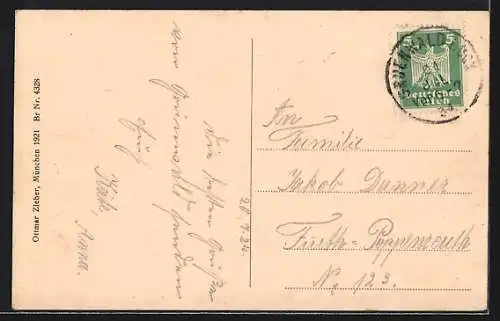 Ottmar Zieher, München 1921 Br Nr. 4328
20.7.24.
Die besten Grüße
vom Grünwald senden
Käthi, Anna.
5 5
Deutsches
Reich
An
Familie
Jakob Danner
Fürth-Poppenreuth
No. 123.